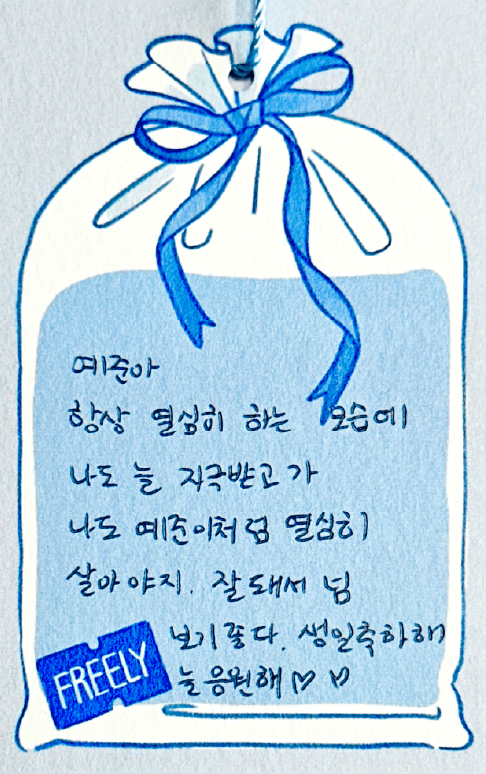 예준아
항상 열심히 하는 모습에
나도 늘 자극받고 가
나도 예준이처럼 열심히
살아야지. 잘돼서 넘
보기좋다. 생일축하해
늘 응원해♡♡
FREELY